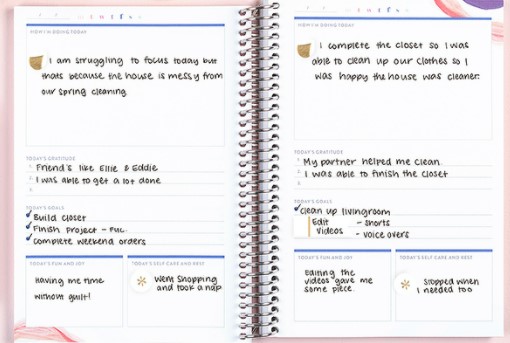 HOW I'M DOING TODAY
I am struggling to focus today but
thats because the house is messy from
our spring cleaning
TODAY'S GRATITUDE
1. Friend's like Ellie & Eddie
2. I was able to get a lot done
3.
TODAY'S GOALS
Build closet
Finish project - FUL.
complete weekend orders
TODAY'S FUN AND JOY
Having me time
without guilt!
TODAY'S SELF CARE AND REST
Went shopping
and took a nap
HOW I'M DOING TODAY
I complete the closet so I was
able to clean up our clothes so I
was happy the house was cleaner.
TODAY'S GRATITUDE
1. My partner helped me clean
2. I was able to finish the closet
3.
TODAY'S GOALS
clean up livingroom
Edit - shorts
videos - voice overs
TODAY'S FUN AND JOY
Editing the
videos gave me
some piece.
TODAY'S SELF CARE AND REST
Stopped when
I needed too